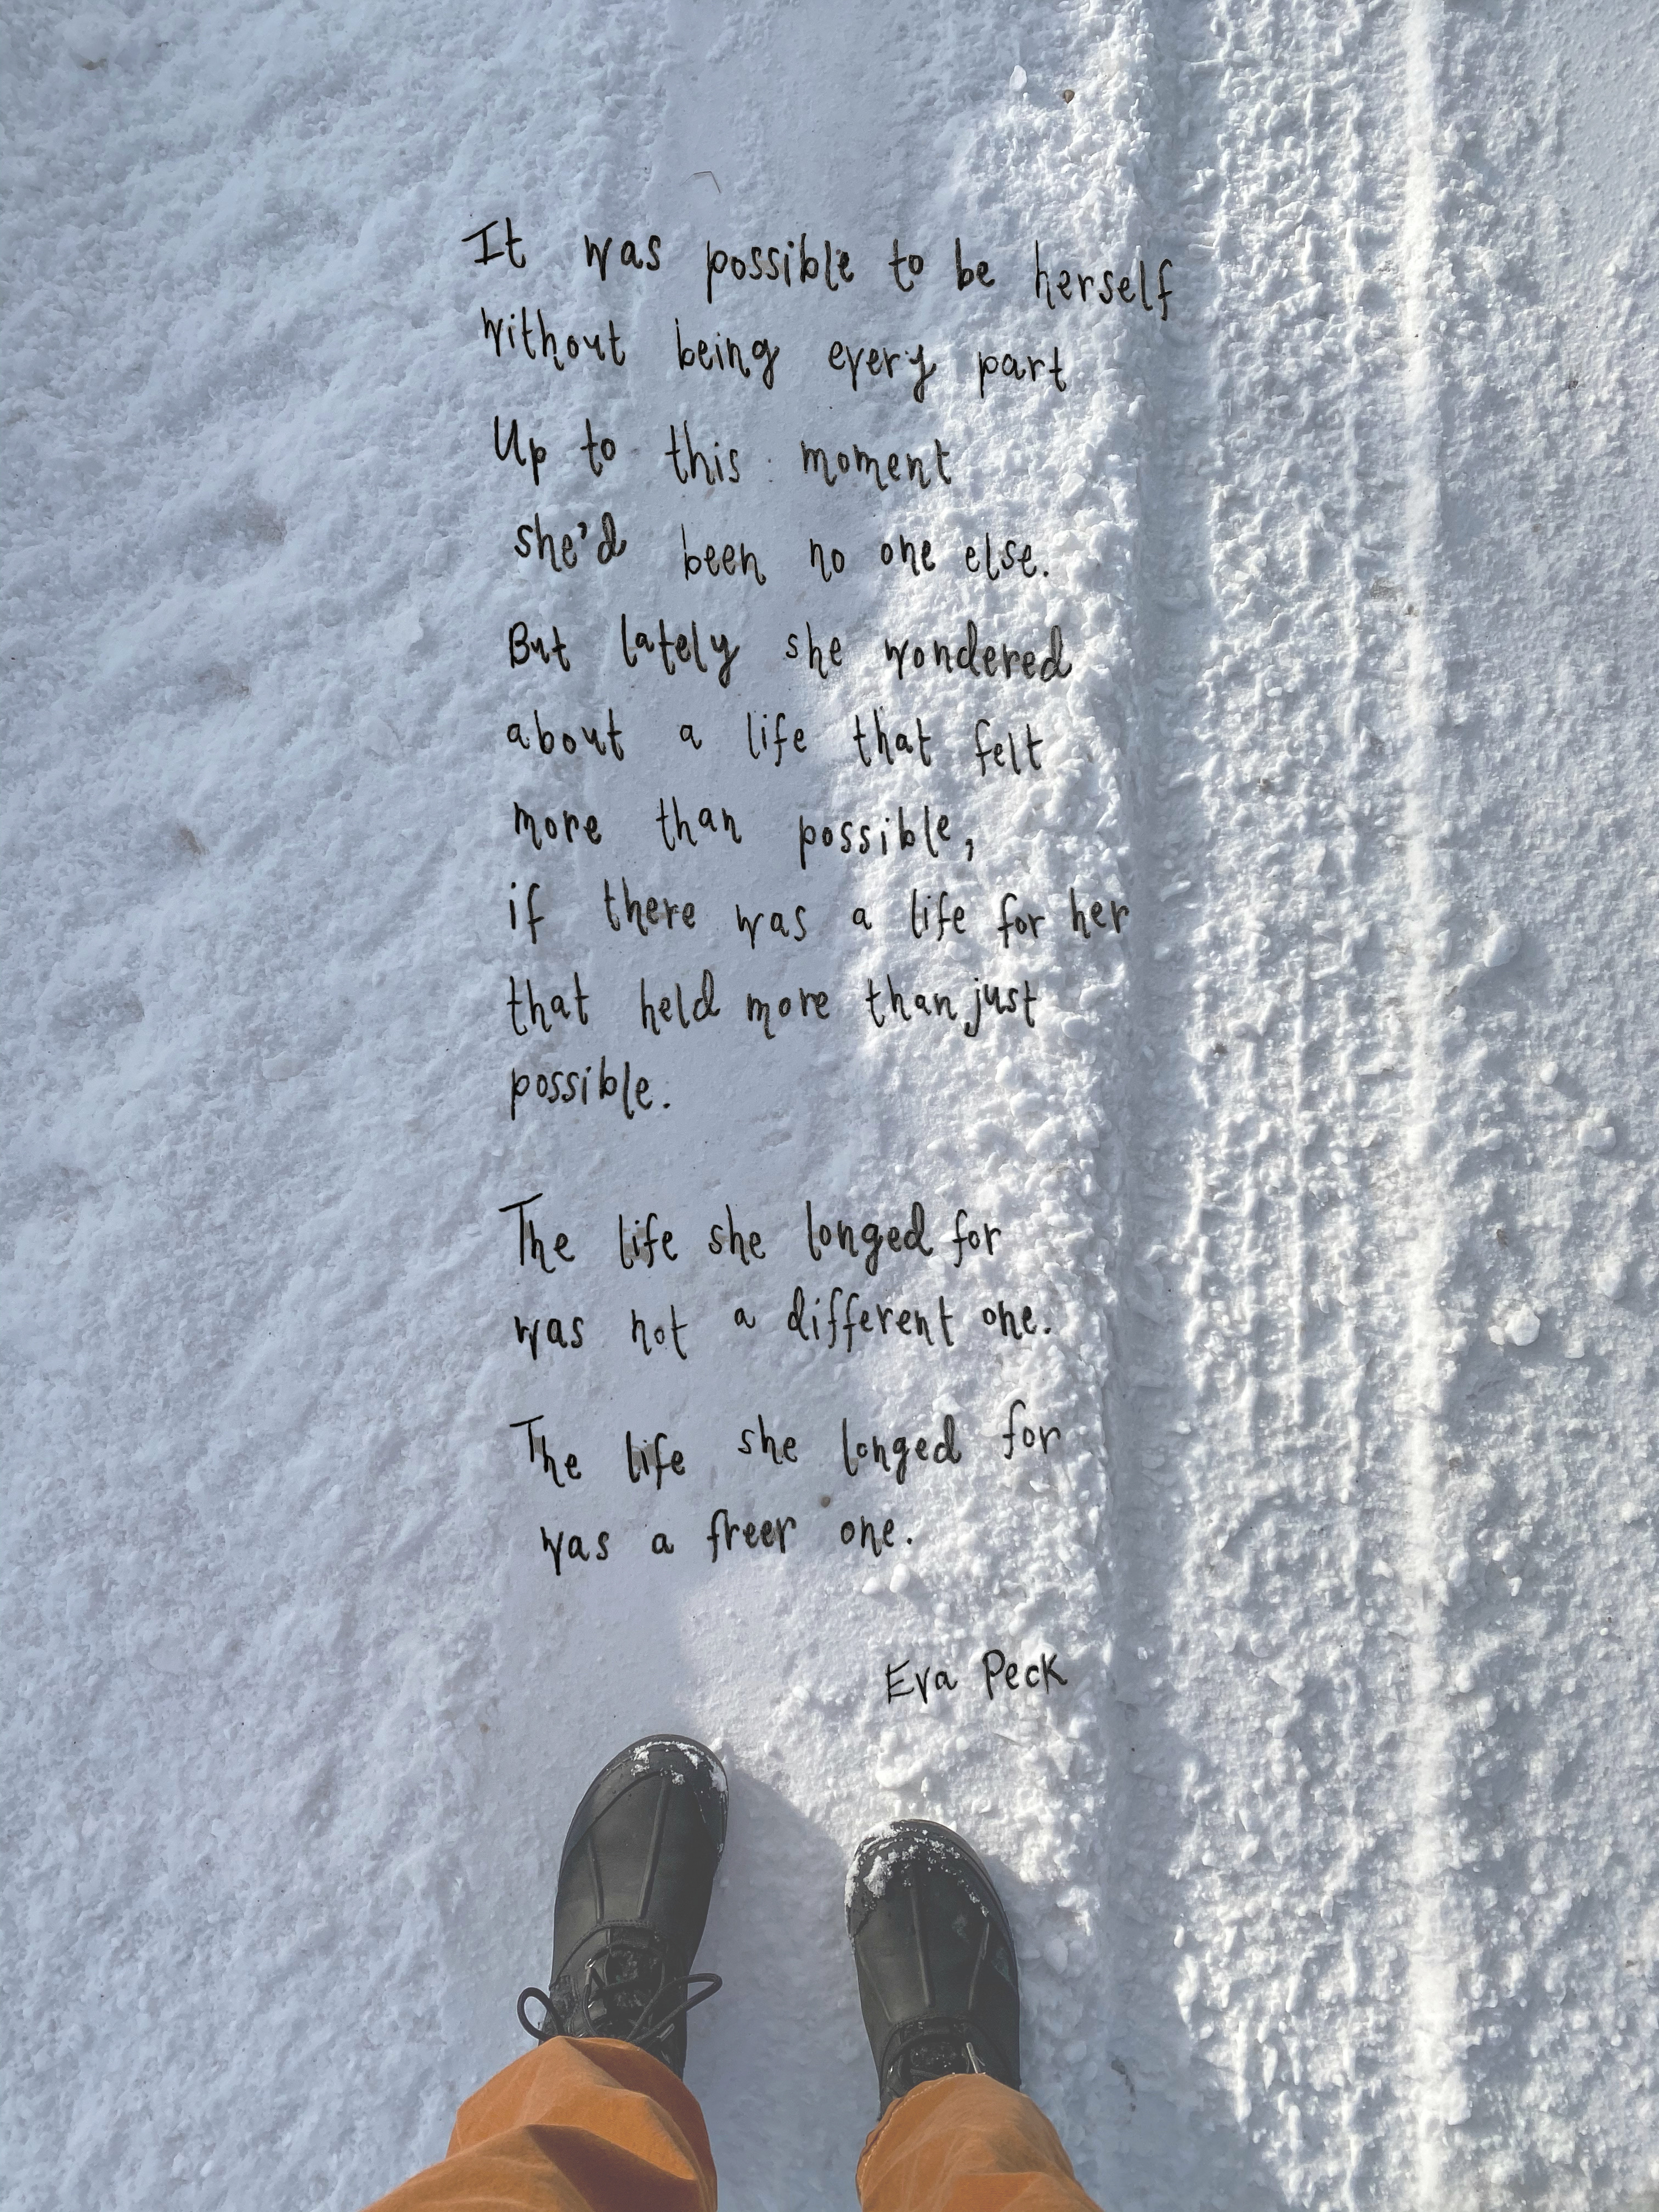 It was possible to be herself
without being every part
Up to this moment
she'd been no one else.
But lately she wondered
about a life that felt
more than possible,
if there was a life for her
that held more than just
possible.
The life she longed for
was not a different one.
The life she longed for
was a freer one.
Eva Peck